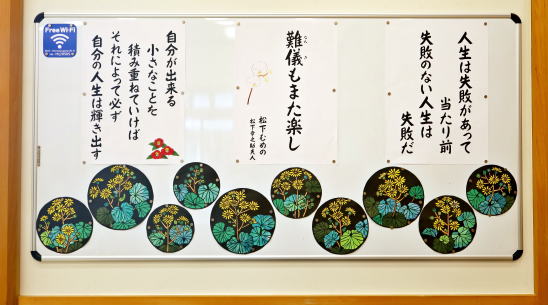 人生は失敗があって
当たり前
失敗のない人生は
失敗だ
難儀もまた楽し
松下むめの
松下幸之助夫人
自分が出来る
小さなことを
積み重ねていけば
それによって必ず
自分の人生は輝き出す
Free Wi-Fi